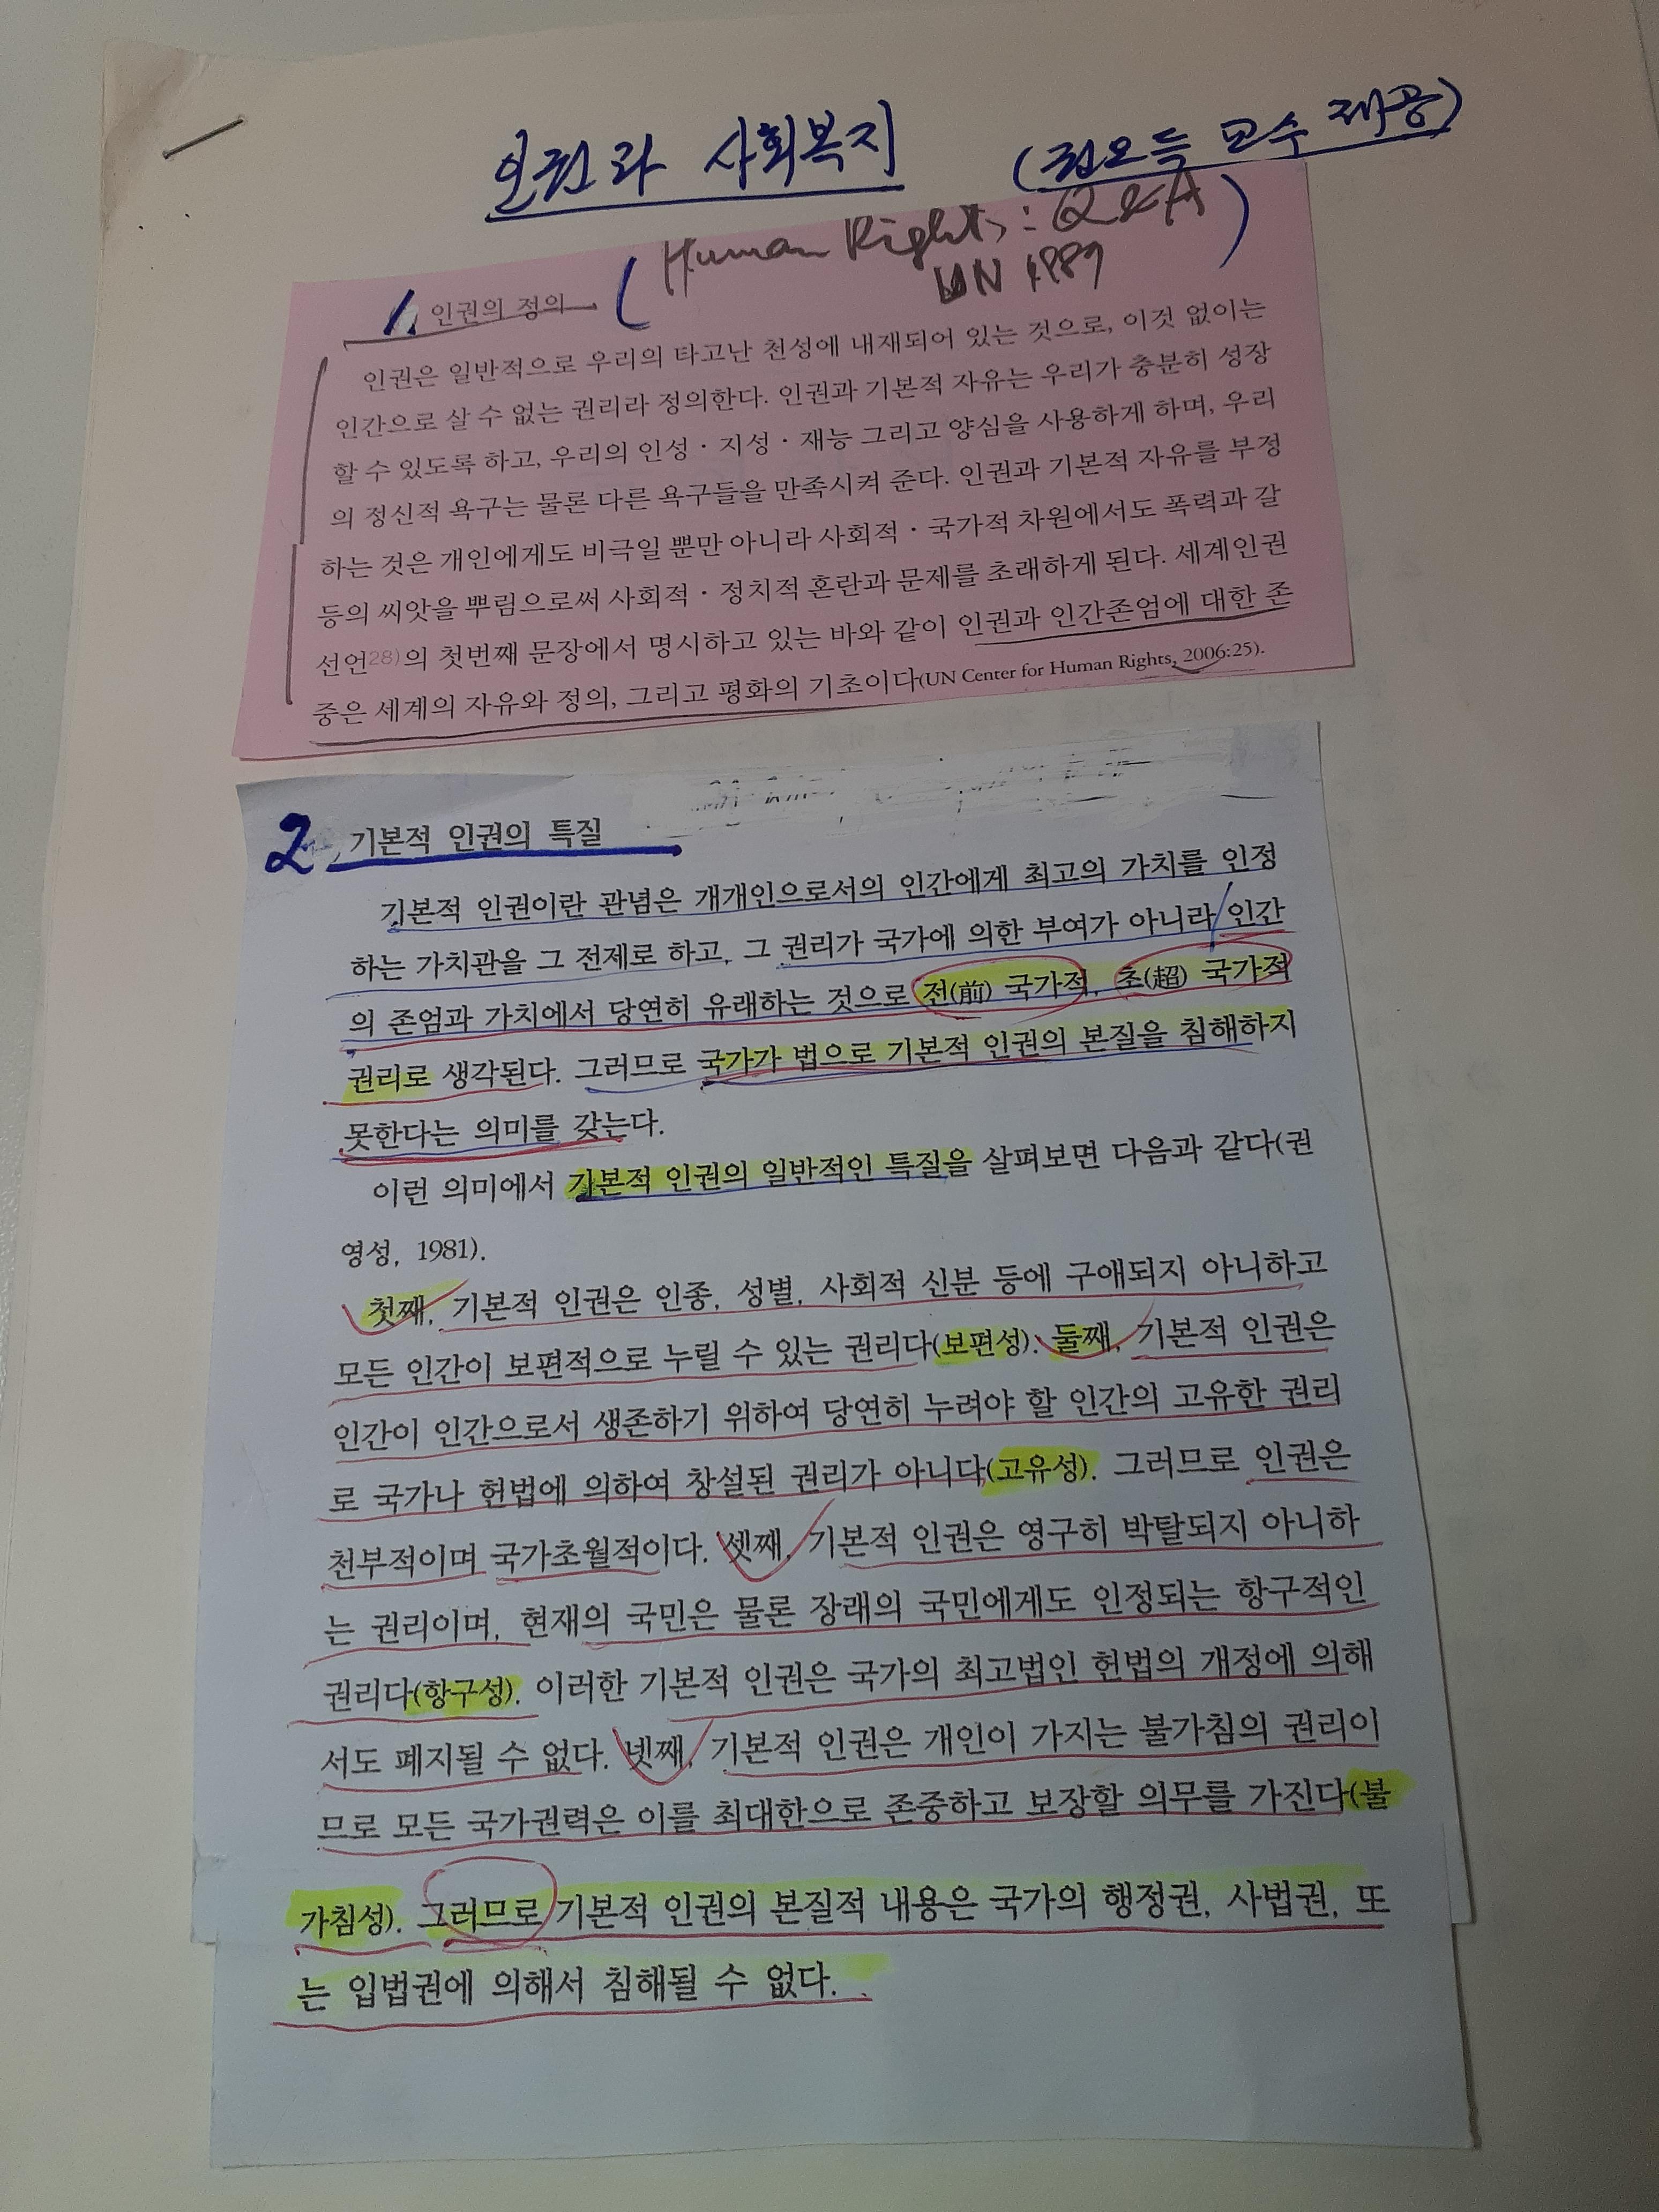 인권과 사회복지 (권오득 교수 제공)
(Human Rights: Q&A)
UN 1989
1. 인권의 정의
인권은 일반적으로 우리의 타고난 천성에 내재되어 있는 것으로, 이것 없이는
인간으로 살 수 없는 권리라 정의한다. 인권과 기본적 자유는 우리가 충분히 성장
할 수 있도록 하고, 우리의 인성·지성·재능 그리고 양심을 사용하게 하며, 우리
의 정신적 욕구는 물론 다른 욕구들을 만족시켜 준다. 인권과 기본적 자유를 부정
하는 것은 개인에게도 비극일 뿐만 아니라 사회적·국가적 차원에서도 폭력과 갈
등의 씨앗을 뿌림으로써 사회적·정치적 혼란과 문제를 초래하게 된다. 세계인권
선언28)의 첫번째 문장에서 명시하고 있는 바와 같이 인권과 인간존엄에 대한 존
중은 세계의 자유와 정의, 그리고 평화의 기초이다(UN Center for Human Rights, 2006:25).
2. 기본적 인권의 특질
기본적 인권이란 관념은 개개인으로서의 인간에게 최고의 가치를 인정
하는 가치관을 그 전제로 하고, 그 권리가 국가에 의한 부여가 아니라 인간
의 존엄과 가치에서 당연히 유래하는 것으로 전(前) 국가적, 초(超) 국가적
권리로 생각된다. 그러므로 국가가 법으로 기본적 인권의 본질을 침해하지
못한다는 의미를 갖는다.
이런 의미에서 기본적 인권의 일반적인 특질을 살펴보면 다음과 같다(권
영성, 1981).
첫째, 기본적 인권은 인종, 성별, 사회적 신분 등에 구애되지 아니하고
모든 인간이 보편적으로 누릴 수 있는 권리다(보편성). 둘째, 기본적 인권은
인간이 인간으로서 생존하기 위하여 당연히 누려야 할 인간의 고유한 권리
로 국가나 헌법에 의하여 창설된 권리가 아니다(고유성). 그러므로 인권은
천부적이며 국가초월적이다. 셋째, 기본적 인권은 영구히 박탈되지 아니하
는 권리이며, 현재의 국민은 물론 장래의 국민에게도 인정되는 항구적인
권리다(항구성). 이러한 기본적 인권은 국가의 최고법인 헌법의 개정에 의해
서도 폐지될 수 없다. 넷째, 기본적 인권은 개인이 가지는 불가침의 권리이
므로 모든 국가권력은 이를 최대한으로 존중하고 보장할 의무를 가진다(불
가침성). 그러므로 기본적 인권의 본질적 내용은 국가의 행정권, 사법권, 또
는 입법권에 의해서 침해될 수 없다.